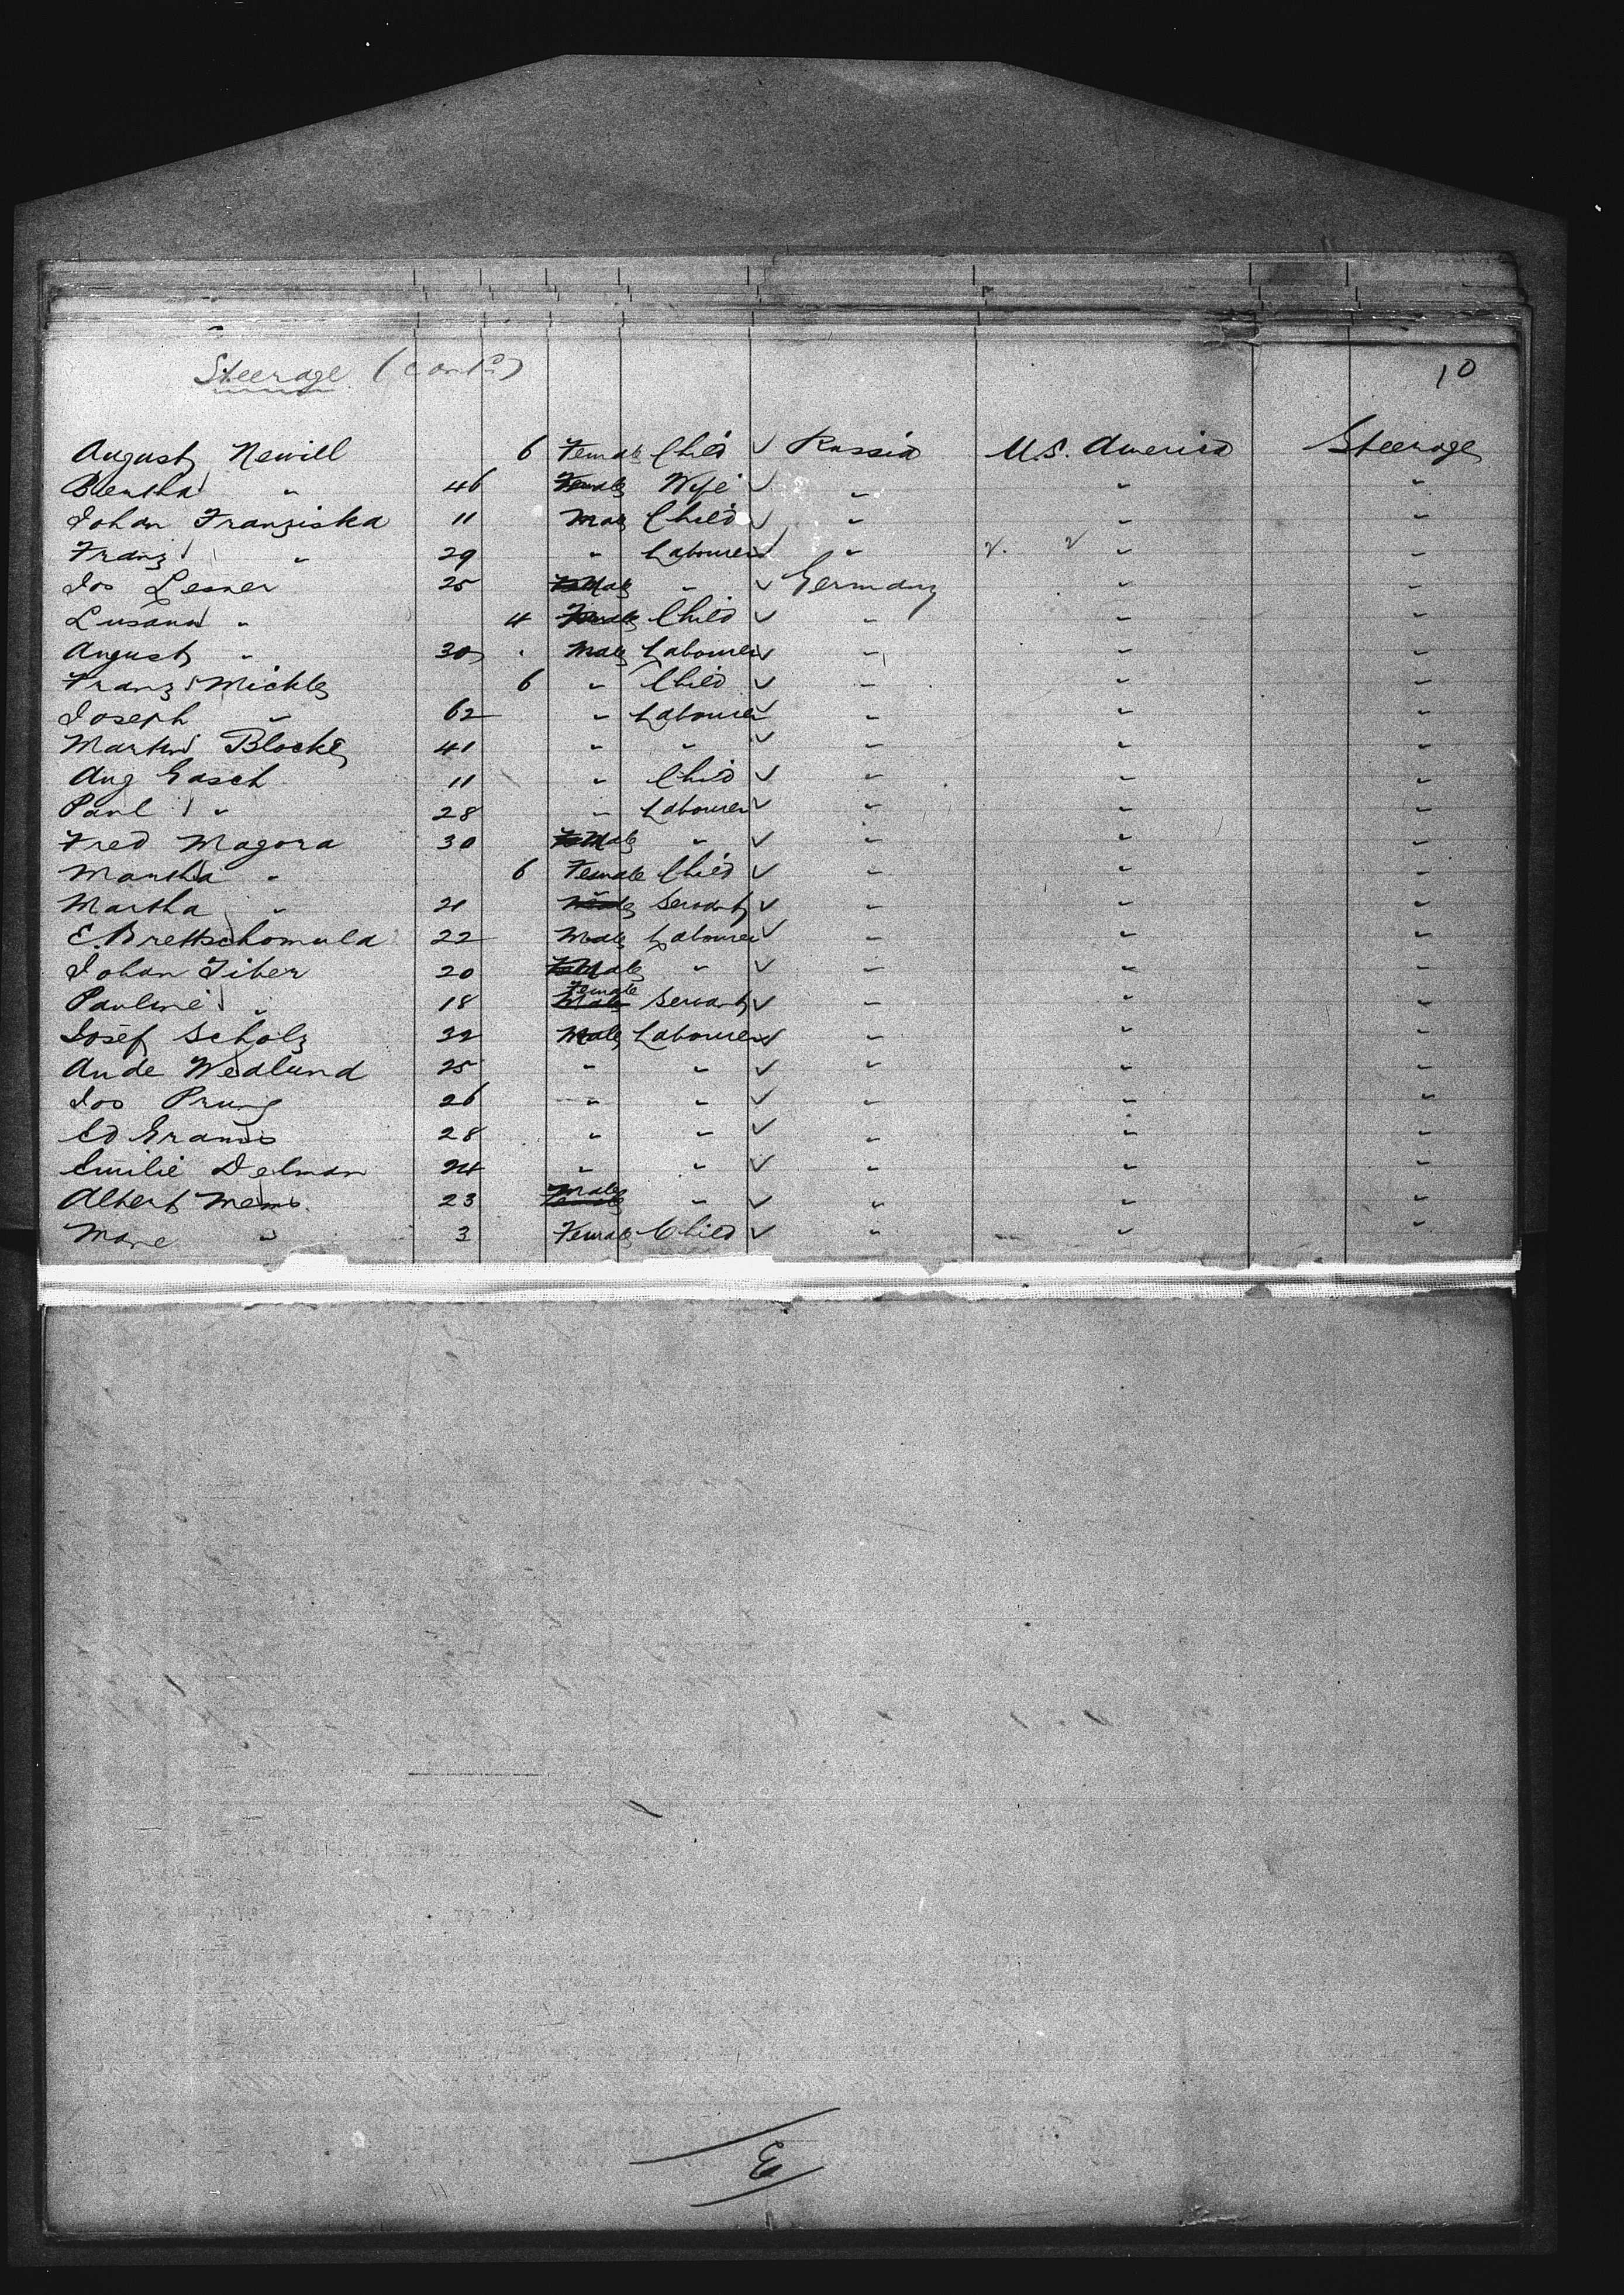 Steerage (Cont.d) 10
August Newill 6 Female Child ✓ Russia U.S. America Steerage
Bertha " 46 Female Wife ✓ " " "
Johan Franziska 11 Male Child ✓ " " "
Franz " 29 " Labourer ✓ " " "
Jos Lesner 25 Male " ✓ Germany " "
" 4 Female Child ✓ " " "
August " 30 Male Labourer ✓ " " "
Franz Mickley 6 " Child ✓ " " "
Joseph " 62 " Labourer ✓ " " "
Martin Blocke 41 " " ✓ " " "
Aug Gasch 11 " Child ✓ " " "
Paul " 28 " Labourer ✓ " " "
Fred Magora 30 Male " ✓ " " "
Martha " 6 Female Child ✓ " " "
Martha " 21 Servant ✓ " " "
E. Brettschomula 22 Male Labourer ✓ " " "
Johan Tiber 20 Male " ✓ " " "
Pauline " 18 Female Servant ✓ " " "
Josef Scholz 32 Male Labourer ✓ " " "
Ande Wedlund 25 " " ✓ " " "
Jos Prung 26 " " ✓ " " "
Ed 28 " " ✓ " " "
Emilie Delman 24 " " ✓ " " "
Albert Mems 23 Male " ✓ " " "
Marie " 3 Female Child ✓ " " "
E